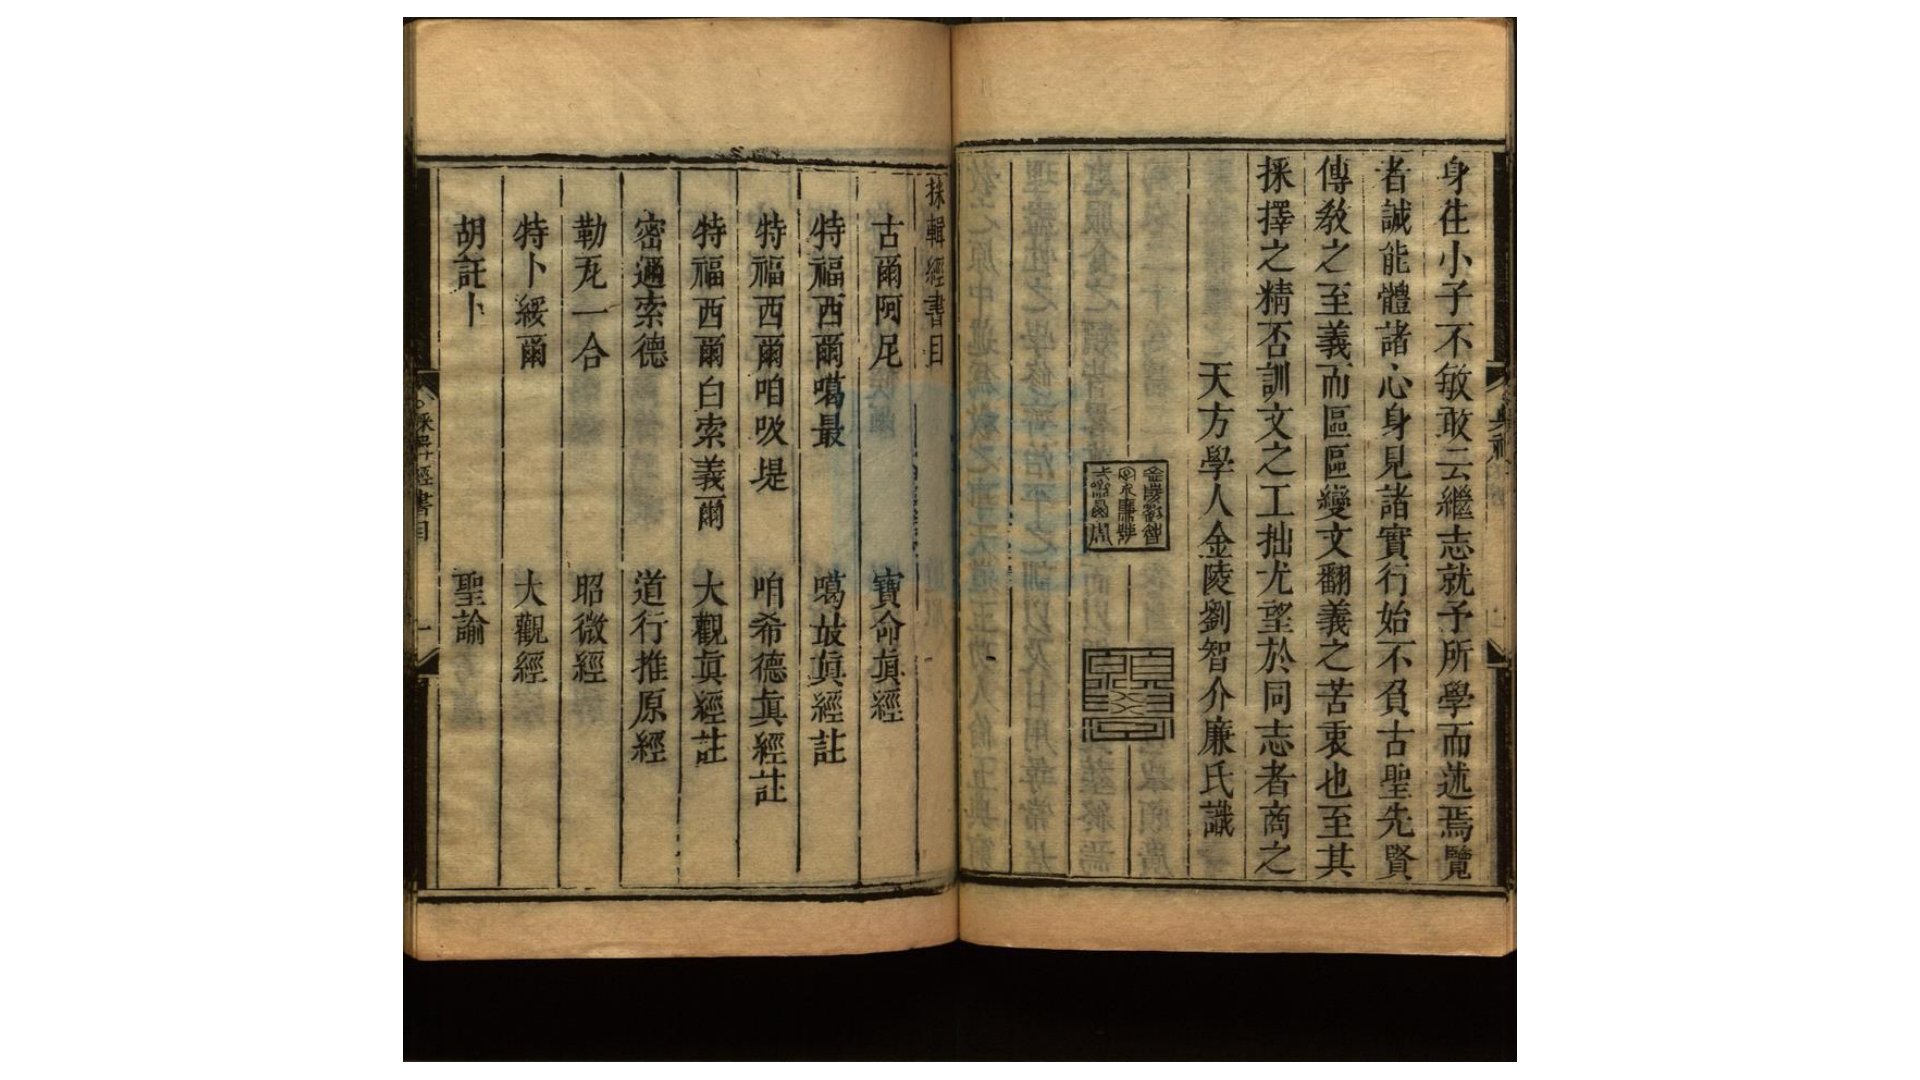 身徃小子不敏敢云繼志就予所學而述焉覽
者誠能體諸心身見諸實行始不負古聖先賢
傳敎之至義而區區變文翻義之苦衷也至其
採擇之精否訓文之工拙尤望於同志者商之
天方學人金陵劉智介廉氏識
採輯經書目
古爾阿尼 寶命眞經
特福西爾噶最 噶最眞經註
特福西爾咱吸堤 咱希德眞經註
特福西爾白索義爾 大觀眞經註
密邇索德 道行推原經
勒瓦一合 昭微經
特卜綏爾 大觀經
胡託卜 聖諭
採輯經書目 一